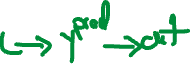 ↳→ y^pred → out